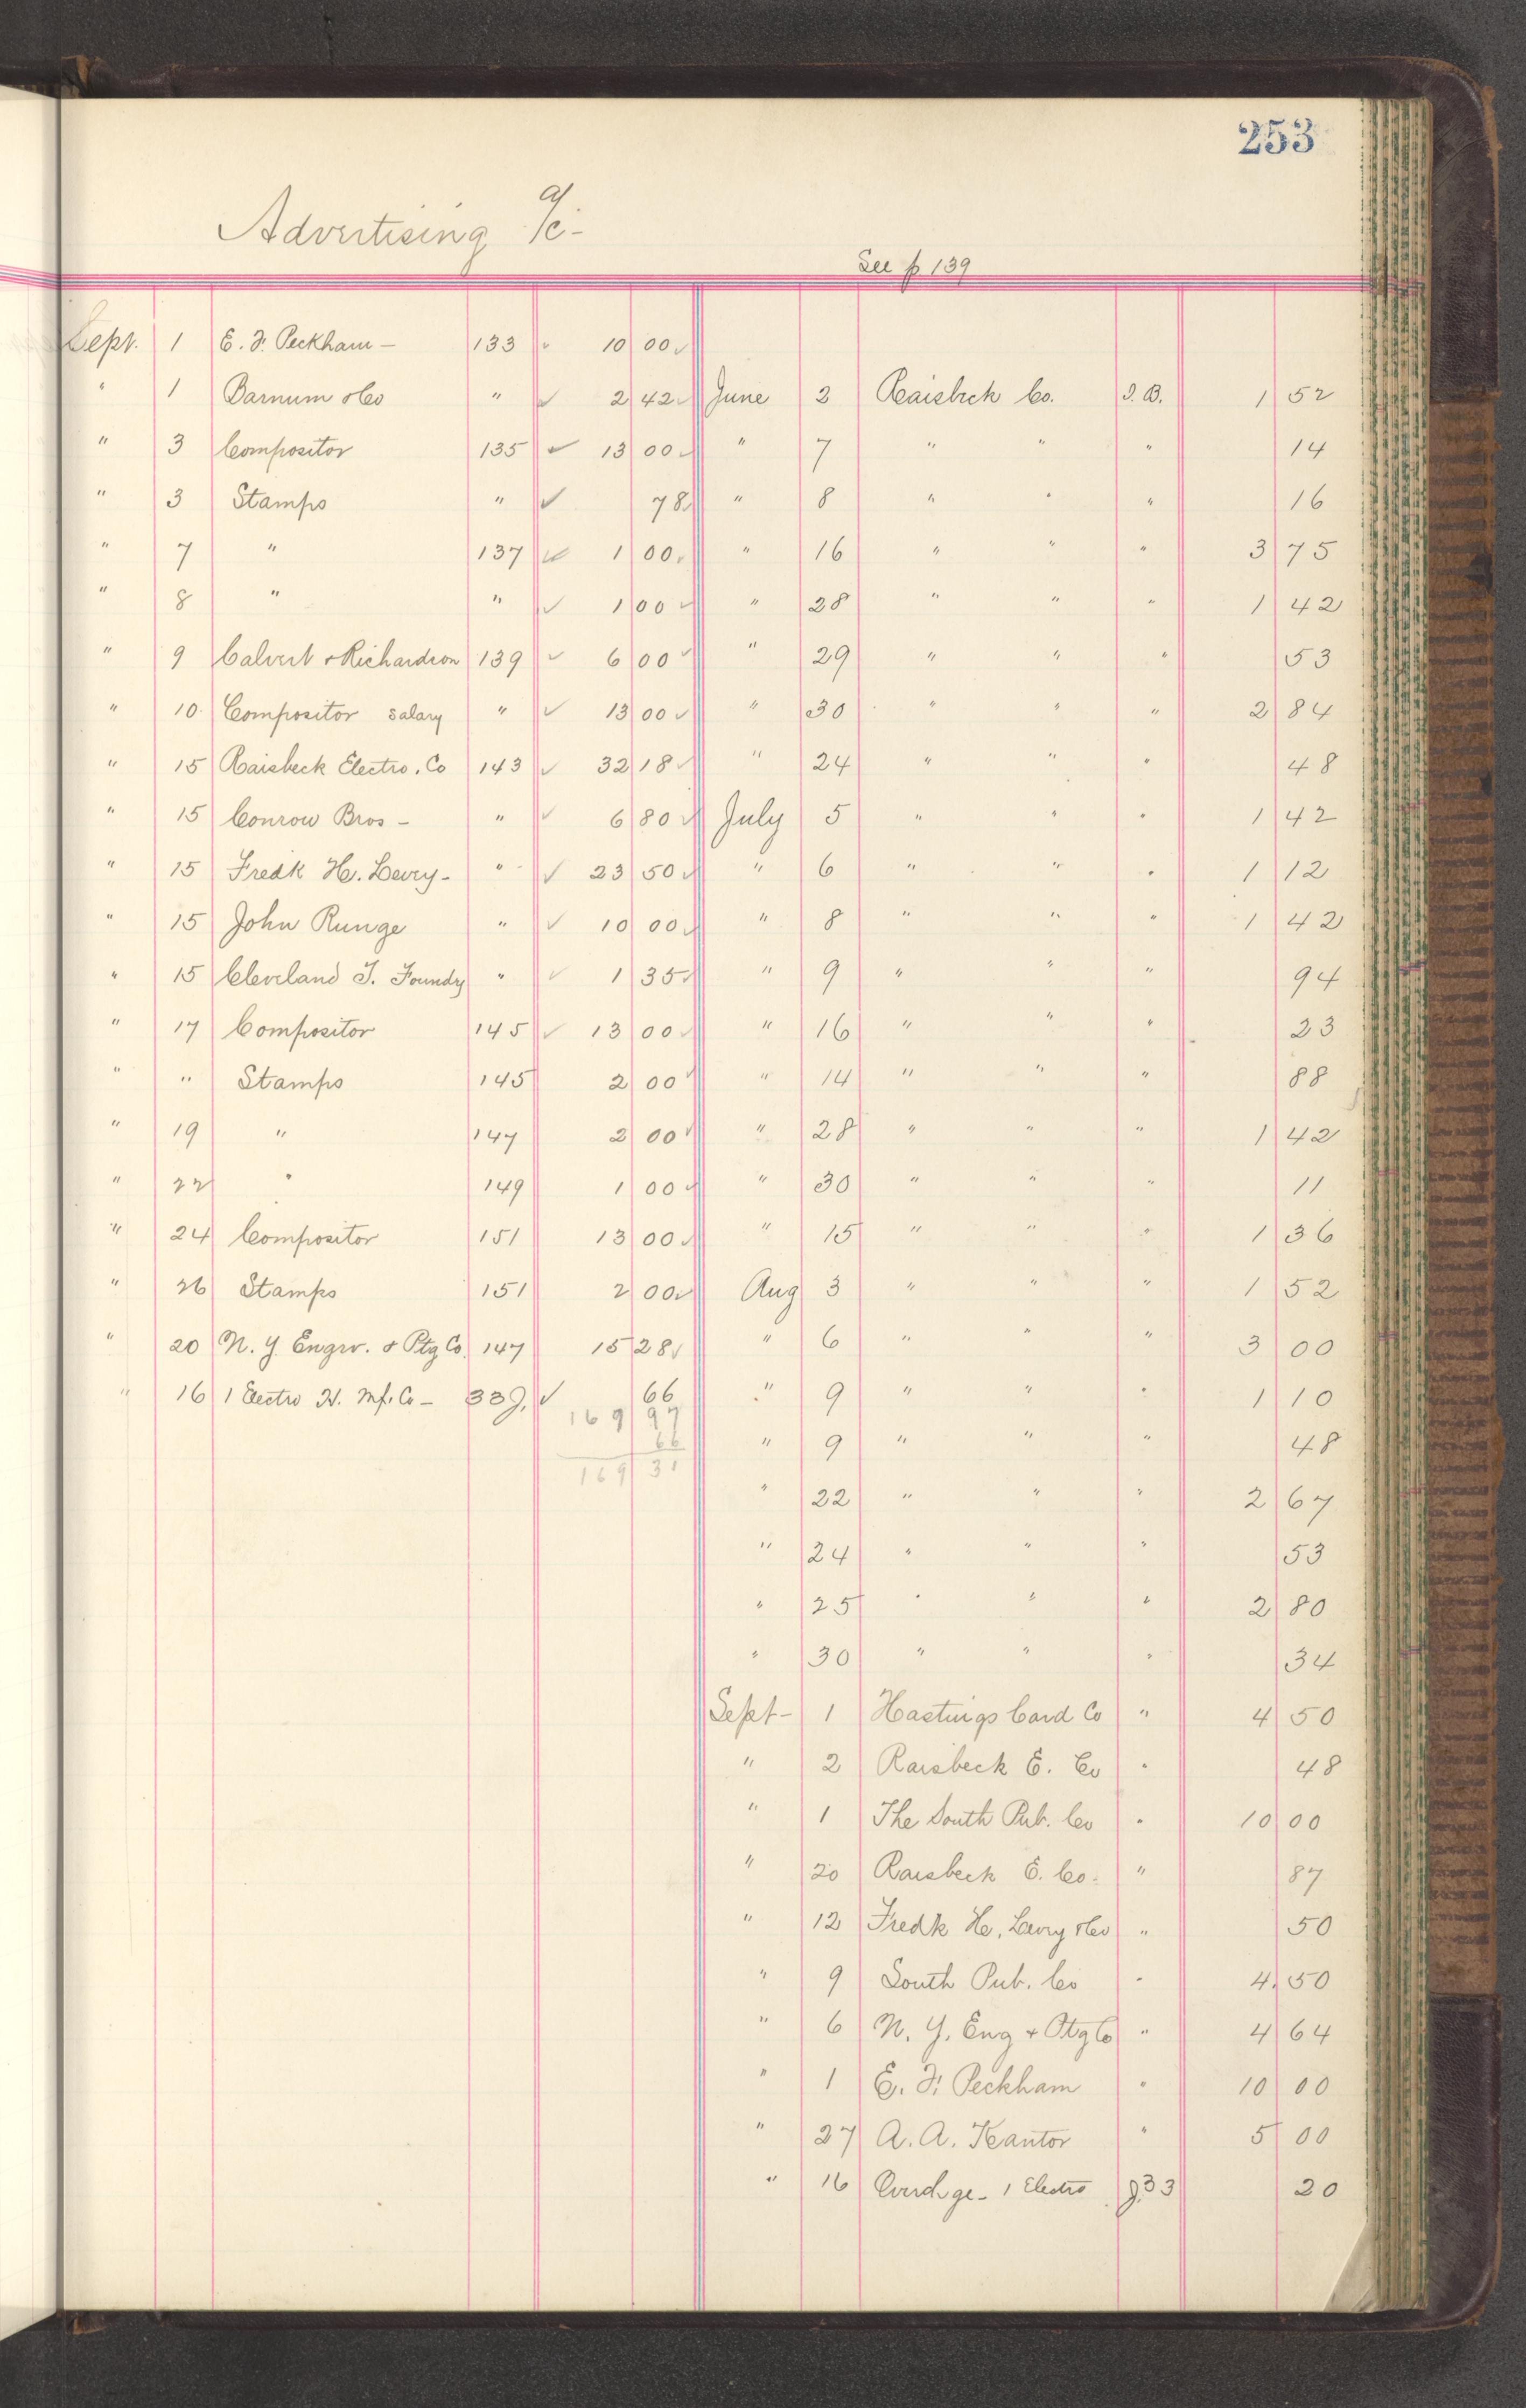 253
Advertising a/c-
See p 139
Sept. 1 E. F. Peckham - 133 10 00 ✓
" 1 Barnum & Co " ✓ 2 42 ✓
" 3 Compositor 135 ✓ 13 00 ✓
" 3 Stamps " ✓ 78 ✓
" 7 " 137 ✓ 1 00 ✓
" 8 " " ✓ 1 00 ✓
" 9 Calvert & Richardson 139 ✓ 6 00 ✓
" 10 Compositor salary " ✓ 13 00 ✓
" 15 Raisbeck Electro. Co 143 ✓ 32 18 ✓
" 15 Conrow Bros - " ✓ 6 80 ✓
" 15 Fredk H. Levey - " ✓ 23 50 ✓
" 15 John Runge " ✓ 10 00 ✓
" 15 Cleveland T. Foundry " ✓ 1 35 ✓
" 17 Compositor 145 ✓ 13 00 ✓
" " Stamps 145 2 00 ✓
" 19 " 147 2 00 ✓
" 22 " 149 1 00 ✓
" 24 Compositor 151 13 00 ✓
" 26 Stamps 151 2 00 ✓
" 20 N. Y. Engrv. & Ptg Co. 147 15 28 ✓
" 16 1 Electro H. Mf. Co - 33 J. ✓ 66
169 97
66
169 31
June 2 Raisbeck Co. I. B. 1 52
" 7 " " " 14
" 8 " " " 16
" 16 " " " 3 75
" 28 " " " 1 42
" 29 " " " 53
" 30 " " " 2 84
" 24 " " " 48
July 5 " " " 1 42
" 6 " " " 1 12
" 8 " " " 1 42
" 9 " " " 94
" 16 " " " 23
" 14 " " " 88
" 28 " " " 1 42
" 30 " " " 11
" 15 " " " 1 36
Aug 3 " " " 1 52
" 6 " " " 3 00
" 9 " " " 1 10
" 9 " " " 48
" 22 " " " 2 67
" 24 " " " 53
" 25 " " " 2 80
" 30 " " " 34
Sept - 1 Hastings Card Co " 4 50
" 2 Raisbeck E. Co " 48
" 1 The South Pub. Co " 10 00
" 20 Raisbeck E. Co. " 87
" 12 Fredk H. Levey & Co " 50
" 9 South Pub. Co " 4 50
" 6 N. Y. Eng & Ptg Co " 4 64
" 1 E. F. Peckham " 10 00
" 27 A. A. Kantor " 5 00
" 16 1 Electro J. 33 20